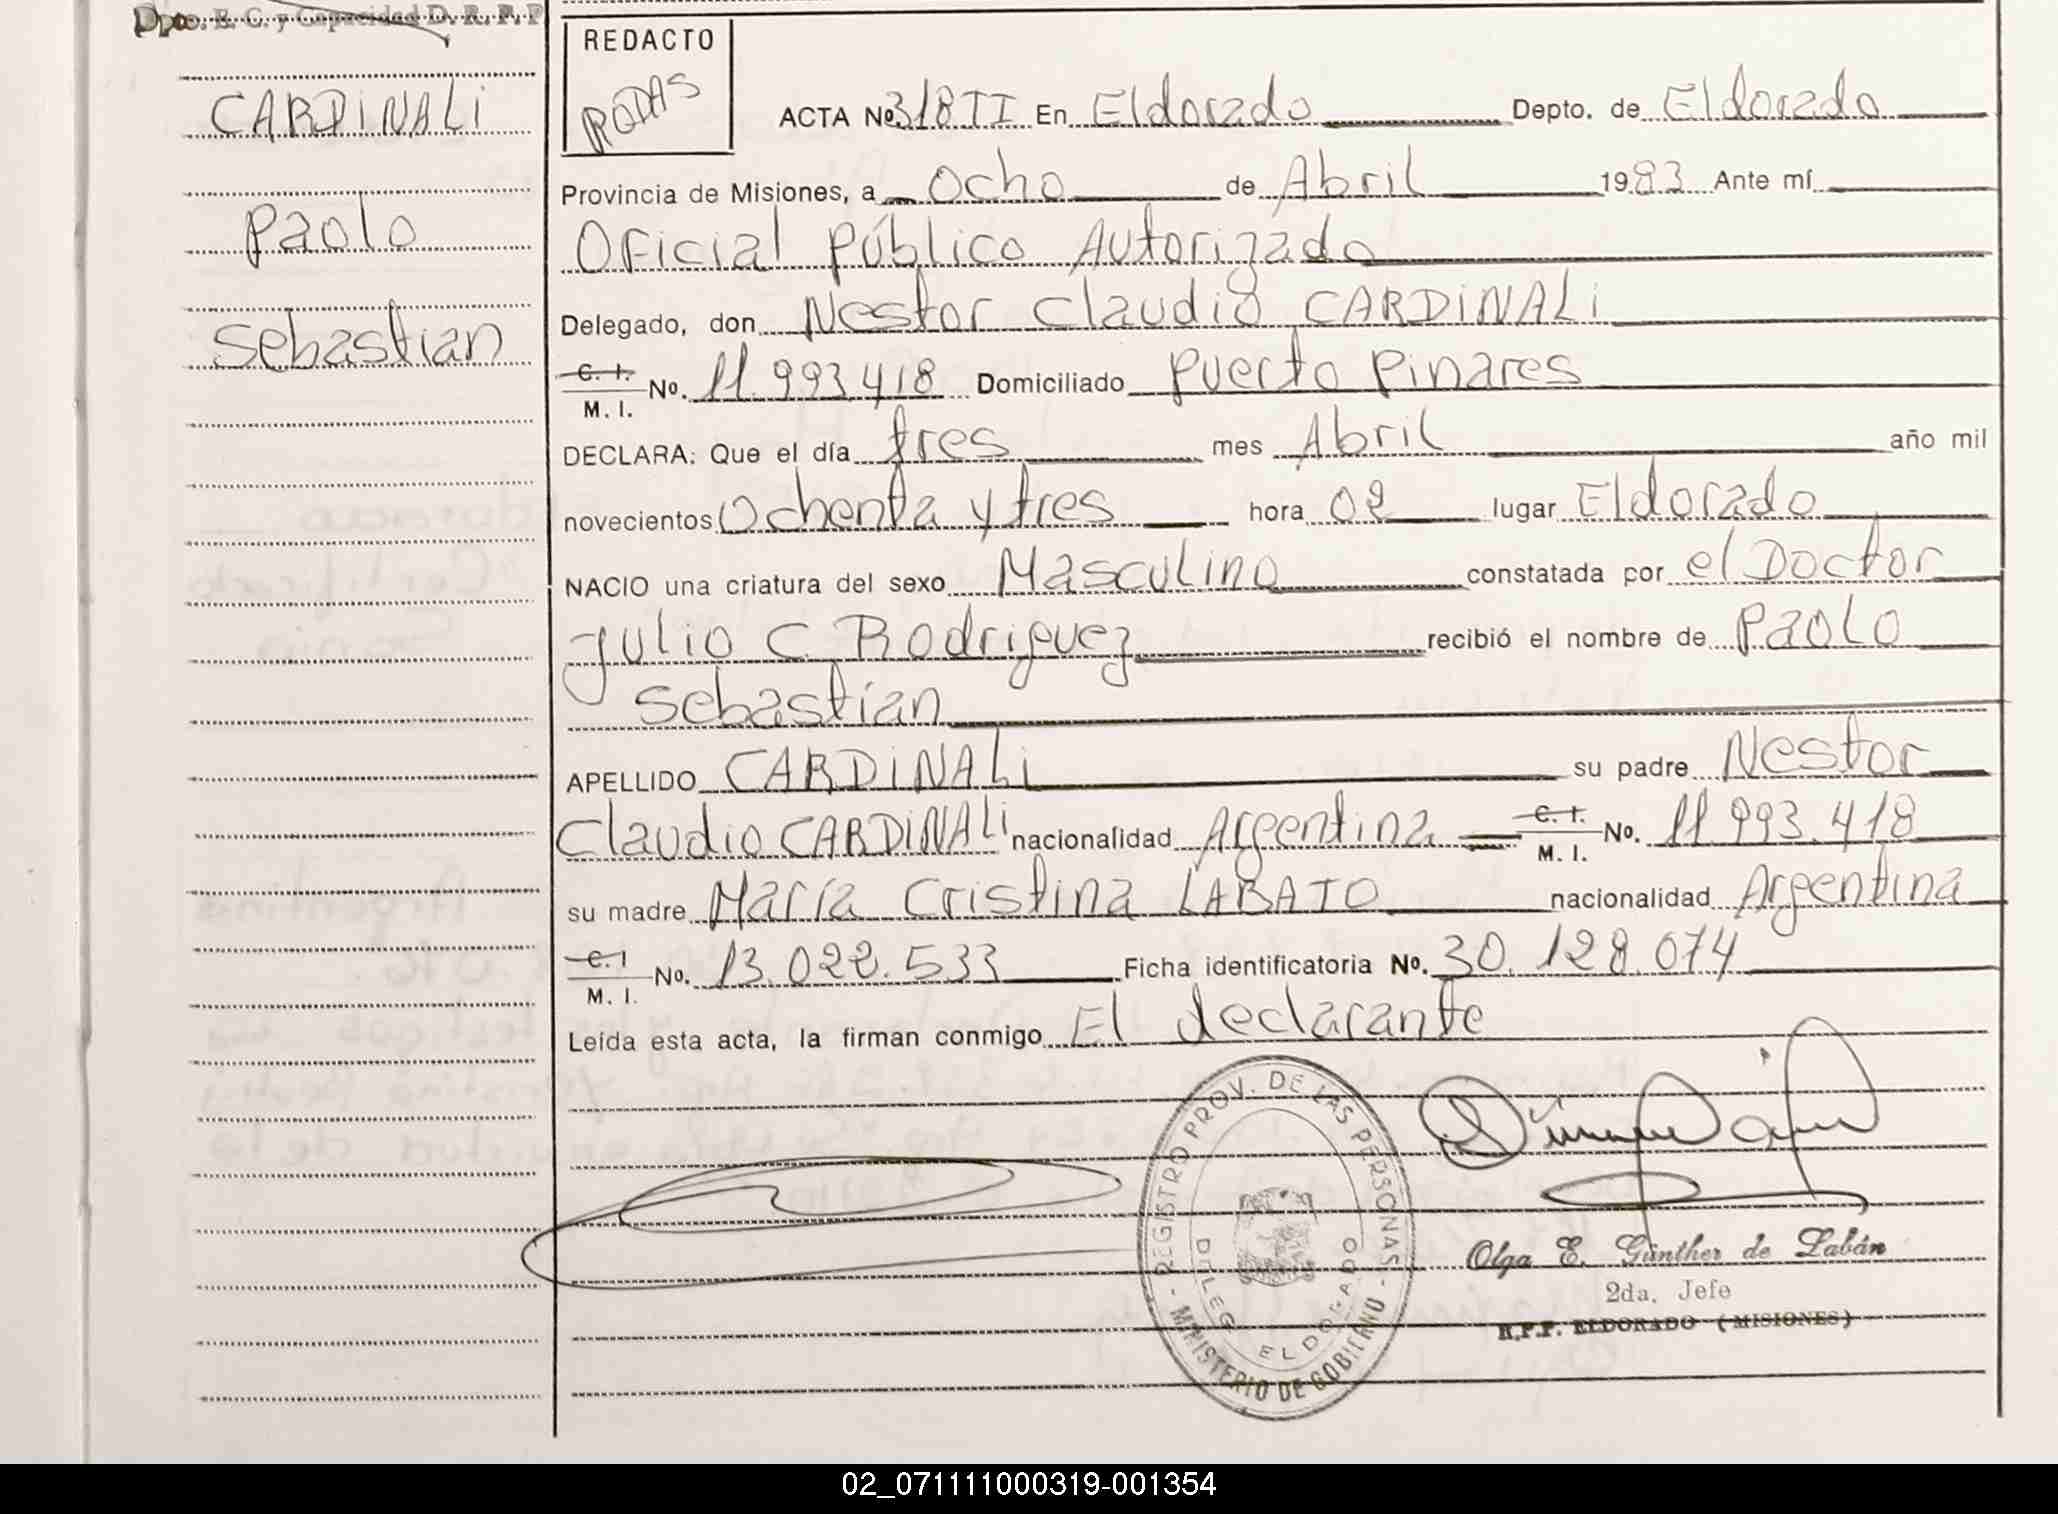 Dpto. E. C. y Capacidad D. R. P. P
CARDINALI
Paolo
Sebastian
REDACTO
RODAS
ACTA No 318 TI En Eldorado Depto. de Eldorado
Provincia de Misiones, a Ocho de Abril 1983 Ante mí
Oficial Público Autorizado
Delegado, don Nestor Claudio CARDINALI
C. I.
M. I. No. 11.993.418 Domiciliado Puerto Pinares
DECLARA: Que el día tres mes Abril año mil
novecientos Ochenta y tres hora 02 lugar Eldorado
NACIO una criatura del sexo Masculino constatada por el Doctor
Julio C. Rodriguez recibió el nombre de Paolo
Sebastian
APELLIDO CARDINALI su padre Nestor
Claudio CARDINALI nacionalidad Argentina C. I.
M. I. No. 11.993.418
su madre María Cristina LABATO nacionalidad Argentina
C. I
M. I. No. 13.022.533 Ficha identificatoria No. 30.128.074
Leída esta acta, la firman conmigo El declarante
REGISTRO PROV. DE LAS PERSONAS - MINISTERIO DE GOBIERNO -
DELEG. ELDORADO
Olga E. Günther de Labán
2da. Jefe
R.P.P. ELDORADO (MISIONES)
02_071111000319-001354